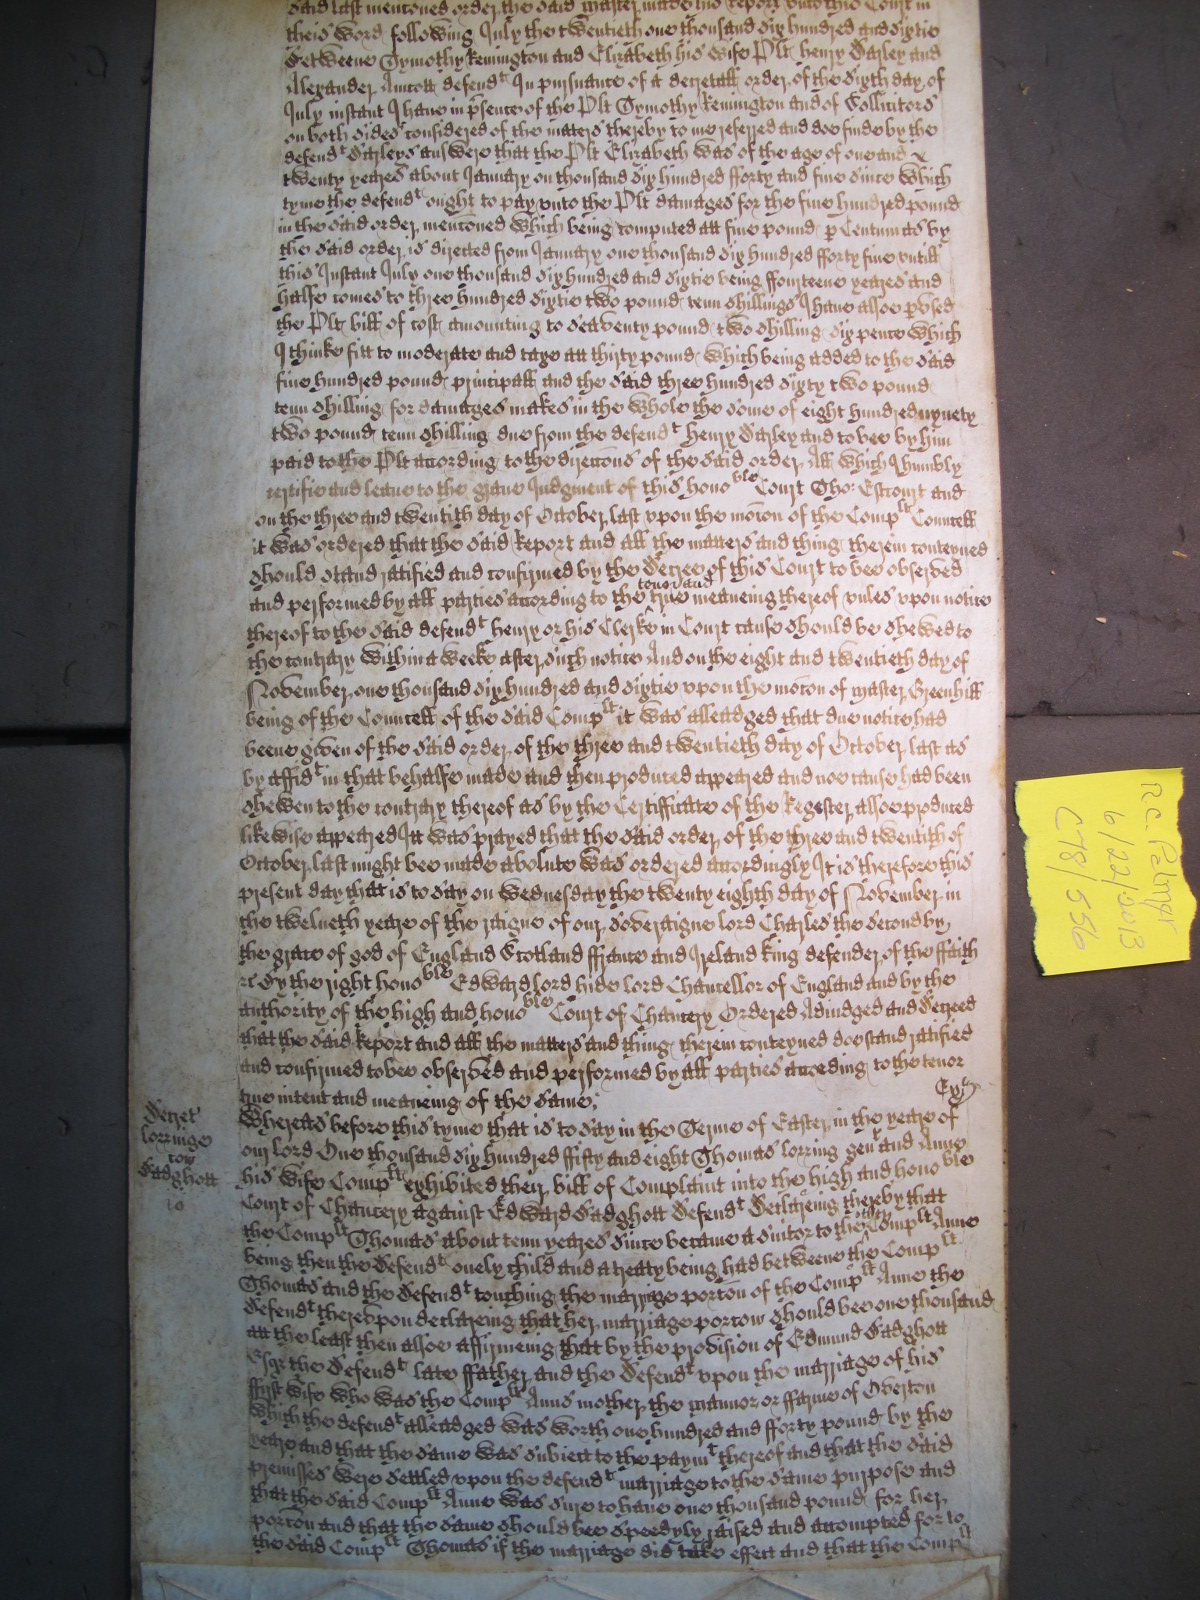 said last mentoned order the said master made his report unto this Court in
theis word following July the twentieth one thousand six hundred and sixtie
Betweene Tymothy Remington and Elizabeth his wife Plt Henry Darley and
Alexander Amcott defendt In pursuance of a decretall order of the sixth day of
July instant I have in psence of the Plt Tymothy Remington and of Sollicitors
on both sides considered of the matters thereby to me referred and doe finde by the
defendt Darleys answere that the Plt Elizabeth was of the age of one and
twenty yeares about January on thousand six hundred fforty and five since which
tyme the defendt ought to pay unto the Plt damages for the five hundred pound
in the said order mentoned which being computed att five pound p Centum as by
the said order is directed from January one thousand six hundred fforty five untill
this Instant July one thousand six hundred and sixtie being ffourteene yeares and
halfe comes to three hundred sixtie two pound tenn shillings I have alsoe pused
the Plt bill of cost amounting to seaventy pound two shilling six pence which
I thinke fitt to moderate and taxe att thirty pound which being added to the said
five hundred pound principall and the said three hundred sixty two pound
tenn shilling for damages makes in the whole the some of eight hundred nynety
two pound tenn shilling due from the defendt Henry Darley and to bee by him
paid to the Plt according to the directons of the said order All which I humbly
certifie and leave to the grave Judgment of this honoble Court Tho: Estcourt and
on the three and twentith day of October last upon the moton of the Complt Councell
it was ordered that the said Report and all the matters and thing therein conteyned
should stand ratified and confirmed by the Decree of this Court to bee observed
and performed by all parties according to the tenor and true meaneing thereof unles upon notice
thereof to the said defendt Henry or his Clerke in Court cause should be shewed to
the contrary within a weeke after such notice And on the eight and twentieth day of
November one thousand six hundred and sixtie upon the moton of master Greenhill
being of the Councell of the said Complt it was alleadged that due notice had
beene given of the said order of the three and twentieth day of October last as
by affidt in that behalfe made and then produced appeared and noe cause had been
shewen to the contrary thereof as by the Certifficate of the Regester alsoe produced
likewise appeared Itt was prayed that the said order of the three and twentith of
October last might bee made absolute was ordered accordingly It is therefore this
present day that is to say on Wednesday the twenty eighth day of November in
the twelveth yeare of the raigne of our soveraigne lord Charles the second by
the grace of god of England Scotland ffrance and Ireland King defender of the ffaith
&c By the right honoble Edward lord Hide lord Chancellor of England and by the
authority of the high and honoble Court of Chancery Ordered Adiudged and Decreed
that the said Report and all the matters and thing therein conteyned doe stand ratified
and confirmed to bee observed and performed by all parties accoding to the tenor
true intent and meaneing of the same;
Exr
Decret
lorringe
con
Badghott
10
Whereas before this tyme that is to say in the Terme of Easter in the yeare of
our lord One thousand six hundred ffifty and eight Thomas lorring gent and Anne
his wife Complt exhibited their bill of Complaint into the high and honoble
Court of Chancery against Edward Badghott defendt Declareing thereby that
the Complt Thomas about tenn yeares since became a suitor to the Complt Anne
being then the defendt onely child and a treaty being had betweene the Complt
Thomas and the defendt touching the marriage porton of the Complt Anne the
defendt thereupon declareing that her marriage porcon should bee one thousand
att the least then alsoe affirmeing that by the provision of Edmund Badghott
Esqr the defendt late ffather and the defendt upon the marriage of his
ffirst wife who was the Complt Anns mother the mannor or ffarme of Overton
which the defendt alleadged was worth one hundred and fforty pound by the
yeare and that the same was subiect to the paymt thereof and that the said
premisses were settled upon the defendt marriage to the same purpose and
that the said Complt Anne was sure to have one thousand pound for her
porton and that the same should bee speedyly raised and accompted for to
the said Complt Thomas if the marriage did take effect and that the Complt
R.C. Palmer
6/22/2013
C78/556